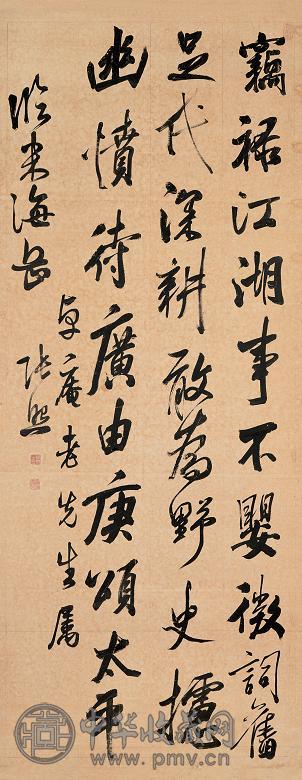 竊祿江湖事不嬰微詞舊
足代深耕敢為野史攄
幽憤待廣由庚頌太平
臨米海岳
卓庵老先生屬
張照
中华收藏网
www.pmv.cn